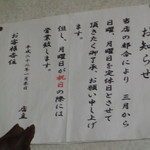 お知らせ
当店の都合により三月から
日曜、月曜日を定休日とさせて
頂きたくご了承、お願い申し上げ
ます。
但し、月曜日が祝日の際には
営業致します。
お客様各位
店主